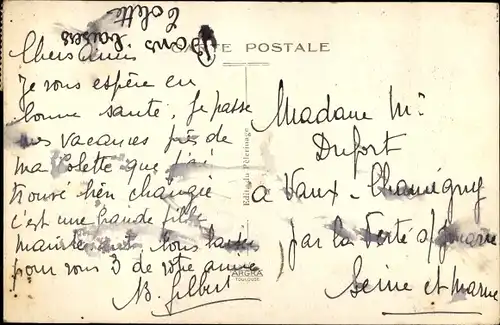 Bons baisers
Colette
CARTE POSTALE
Chers Amis
Je vous espère en
bonne santé, je passe
mes vacances près de
ma Colette que j'ai
trouvé bien changée
c'est une grande fille
maintenant
pour vous 3 de votre amie
B. Gilbert
Madame Mr
Dufort
a Vaux-Champigny
par la Ferté
Seine et Marne
Edit. du Pèlerinage
ARGRA
TOULOUSE